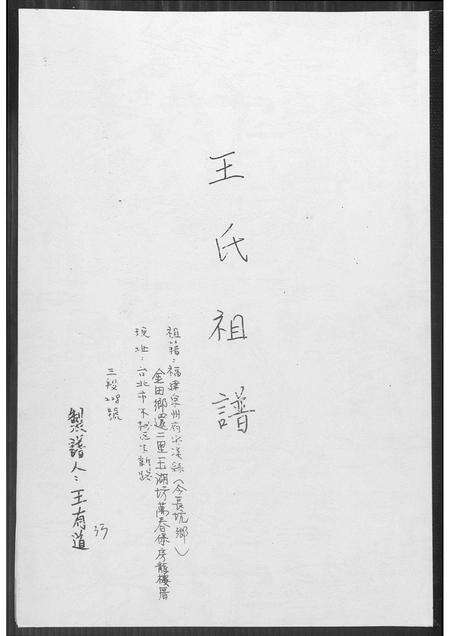 王氏祖譜
祖籍：福建泉州府安溪縣（今長坑鄉）
金田鄉還二里玉湖坊萬春保房龍樓厝
現址：台北市木柵區木新路
三段228號
製譜人：王有道